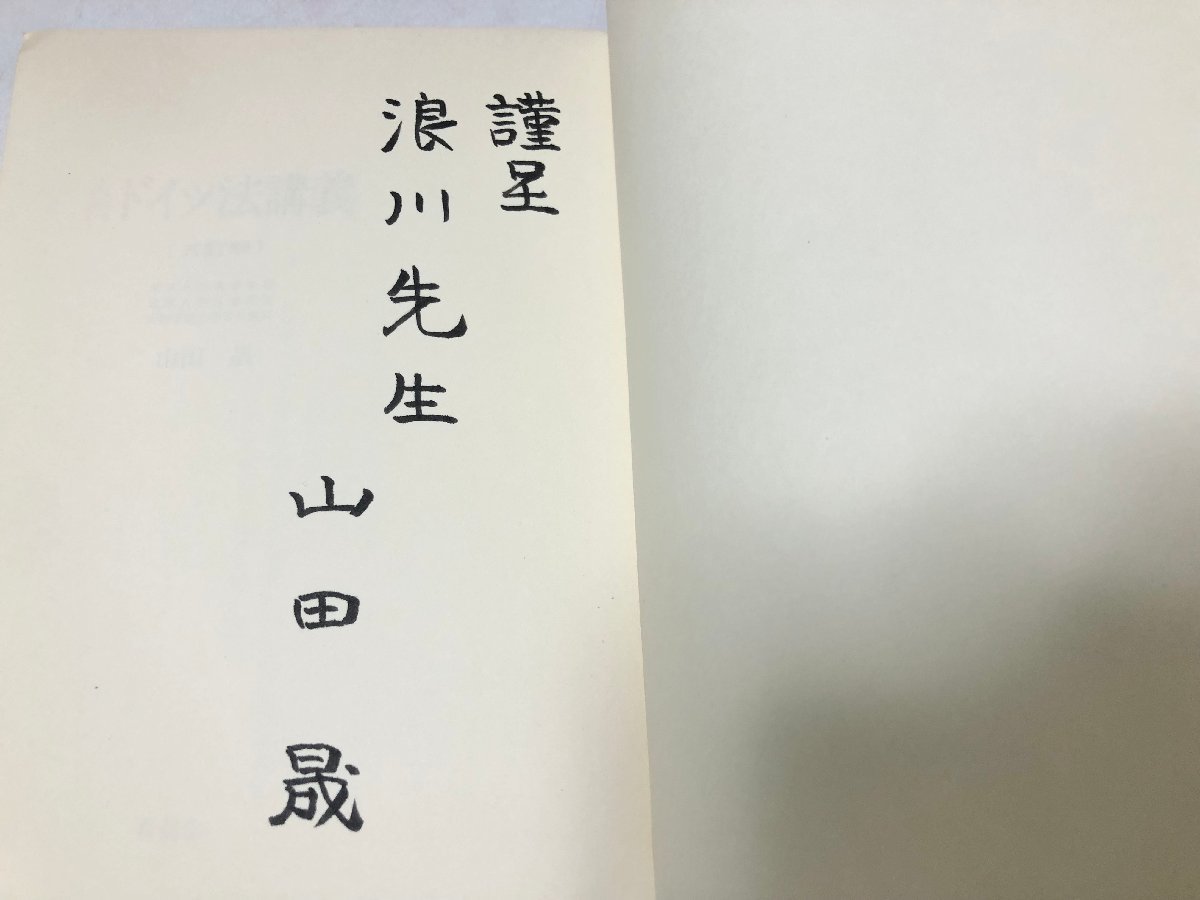 謹呈
浪川先生
山田晟
ドイツ法講義